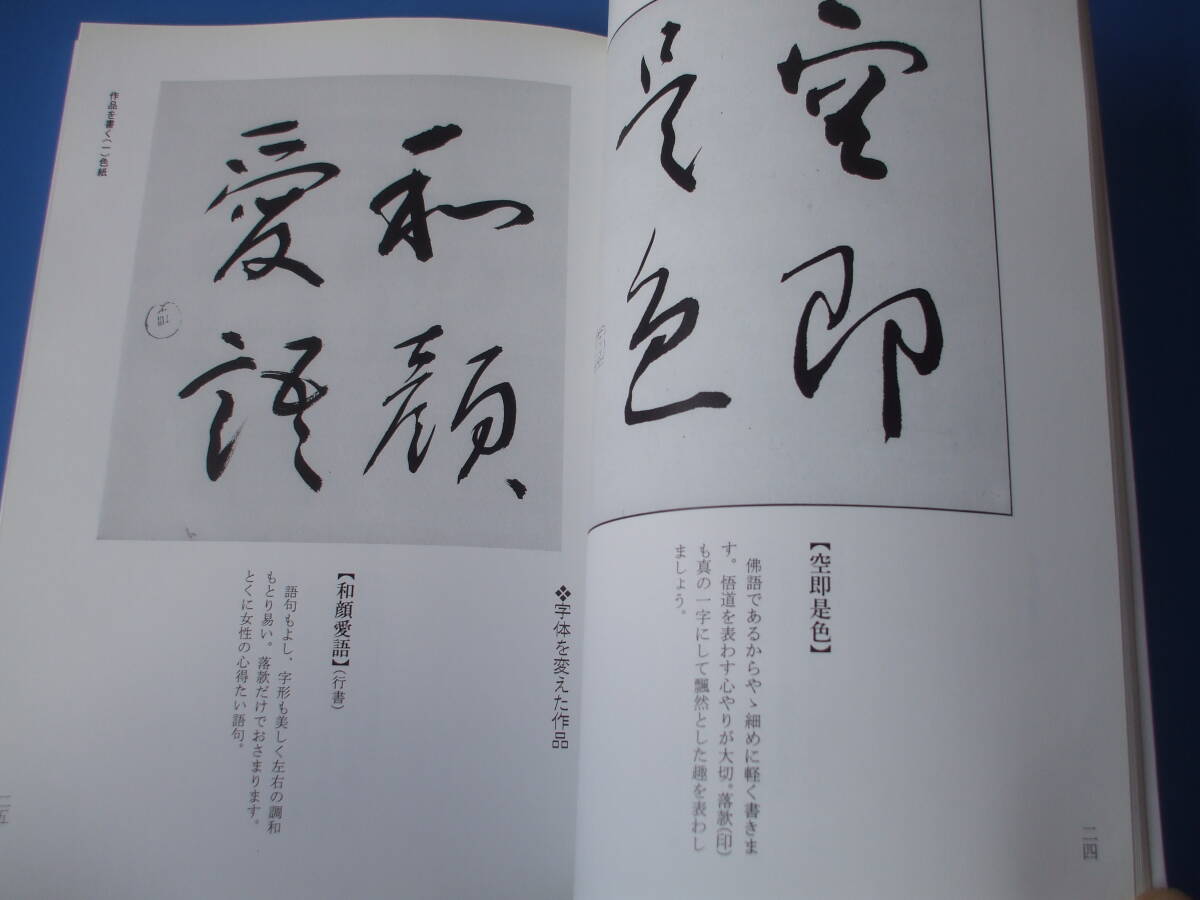 空即
是色
【空即是色】
佛語であるからやゝ細めに軽く書きま
す。悟道を表わす心やりが大切。落款(印)
も真の一字にして飄然とした趣を表わし
ましょう。
二四
❖字体を変えた作品
和顔
愛語
【和顔愛語】(行書)
語句もよし、字形も美しく左右の調和
もとり易い。落款だけでおさまります。
とくに女性の心得たい語句。
作品を書く(一)色紙
二五